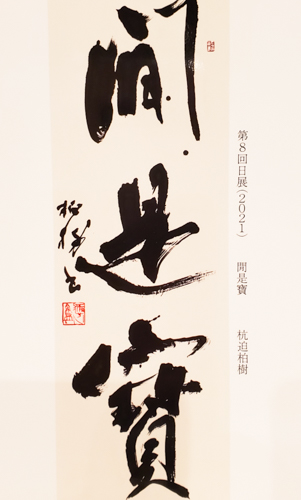 第8回日展(2021)　閒是寶　杭迫柏樹
閒是寶
柏樹書